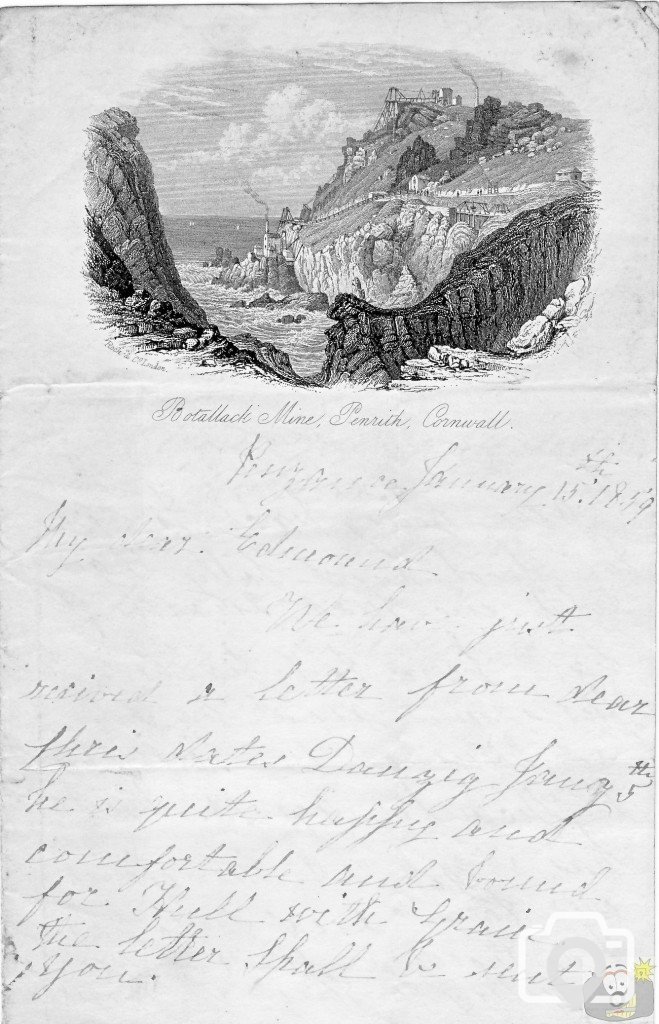 Rock & Co. London.
Botallack Mine, Penrith, Cornwall.
Penzance, January 15th 1859
My dear Edmound
We have just
recived a letter from dear
Chris dates Danzig Jany 5th
he is quite happy and
comfortable and bound
for Hull with Grain
the letter shall be sent
you.